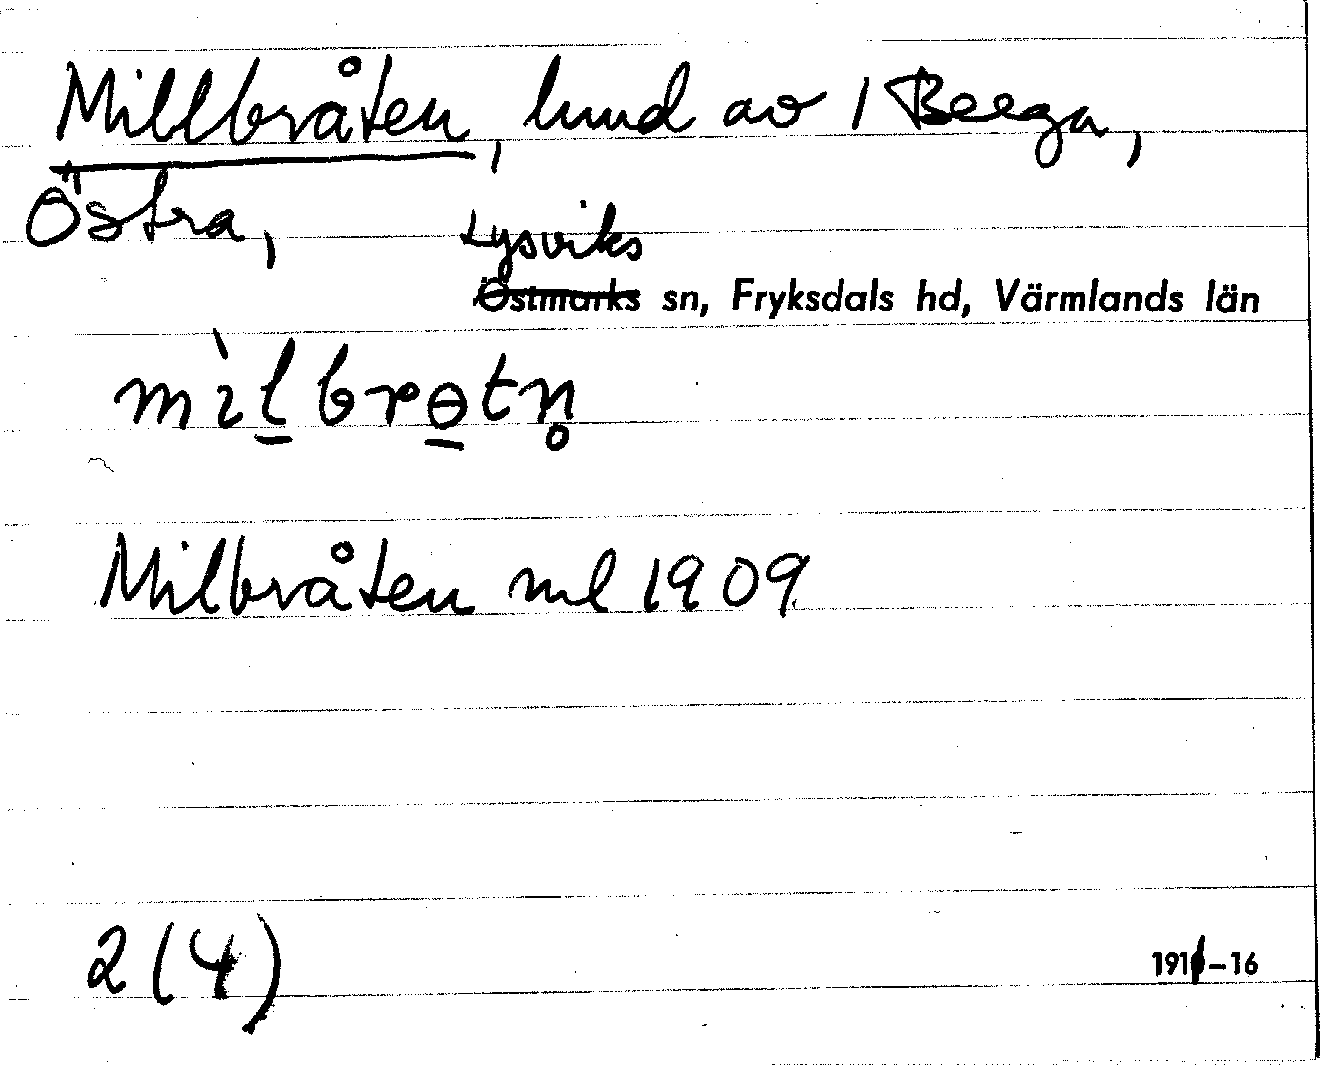 Millbråten, lund av 1 Berga,
Östra,
Lysviks
Östmarks sn, Fryksdals hd, Värmlands län
mìlbrɵtn̥
Milbråten ml 1909
2 (4)
1911-16